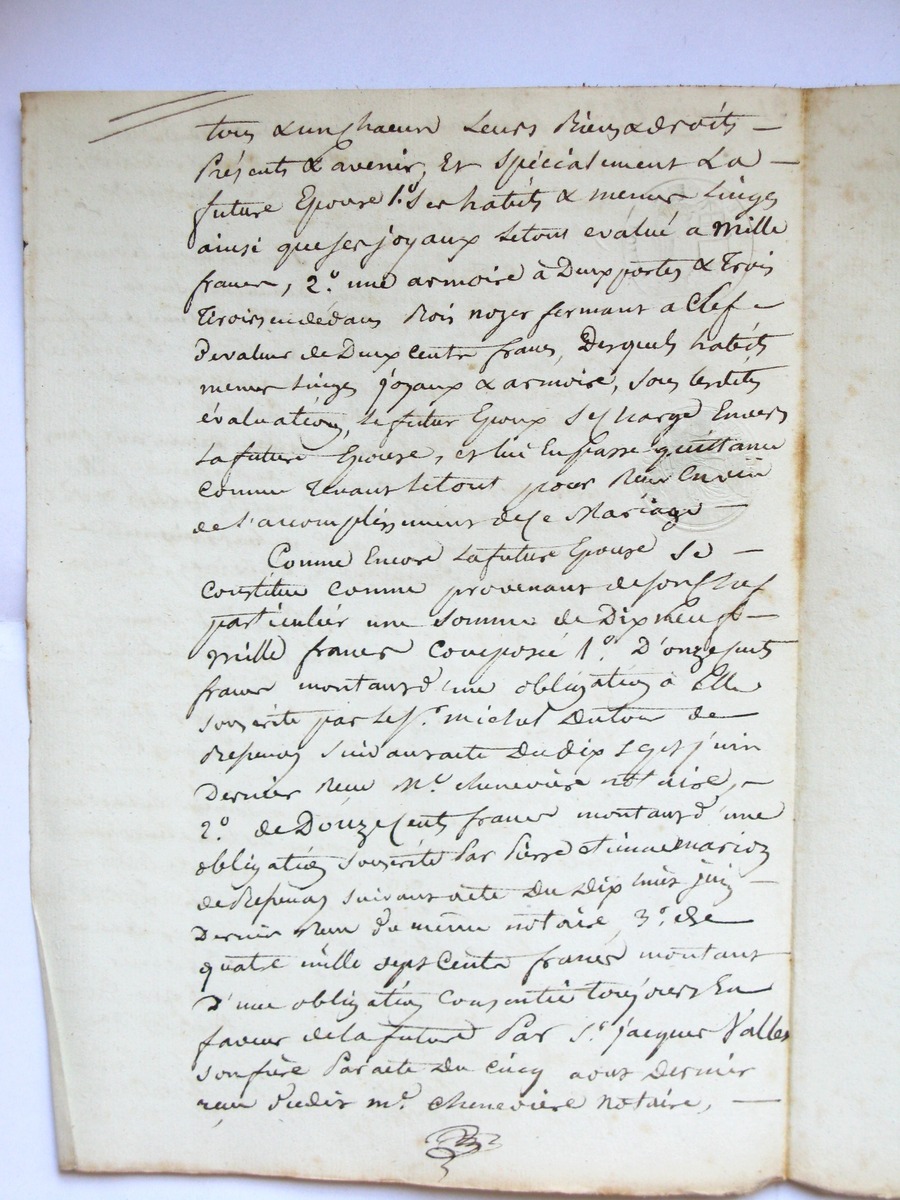 tous & un Chacun Leurs Biens & droits —
Présents & avenir, Et Spécialement La —
future Epouse 1.° Ses habits & menus Linges
ainsi que ses joyaux Le tout évalué a Mille
francs, 2.° une armoire à Deux portes & Trois
Tiroirs en dédans Bois noyer fermant a Clef –
d'evaleur de Deux cents francs, Desquels habits
menus Linges joyaux & armoire, sous lesdites
évaluations, Le futur Epoux Se Charge Envers
La future Epouse, et lui En passe quittance
Comme Tenant Le tout pour Reçu En vüe
de L'accomplissement de Ce Mariage —
Comme Encore La future Epouse Se —
Constitue Comme provenant de son Chef
particulier une Somme de Dix neuf —
mille francs Composée 1.° D'onze cents
francs montant d'une obligation à Elle
souscrite par Le S.r michel Dutour de
suivant acte Du dix Sept juin
Dernier Reçu M.e cheneviére notaire, –
2.° de Douze Cents francs montant d'une
obligation Souscrite Par Pierre Etienne
de suivant acte Du Dix huit juin —
Dernier Reçu du même notaire, 3.° de
quatre mille sept Cents francs montant
D'une obligation Consentie toujours En
faveur de la future Par S.r jacques Valles
son frère Par acte Du Cinq aout Dernier
reçu dudit m.e cheneviére notaire, —